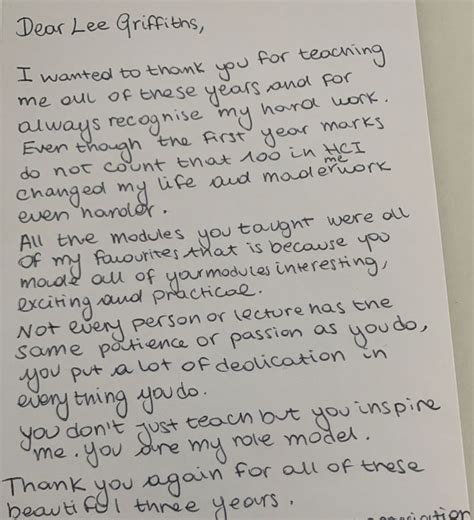 Dear Lee Griffiths,
I wanted to thank you for teaching
me all of these years and for
always recognise my hard work.
Even though the first year marks
do not count that 100 in HCI
changed my life and made me work
even harder.
All the modules you taught were all
of my favourites that is because you
made all of your modules interesting,
exciting and practical.
Not every person or lecture has the
same patience or passion as you do,
you put a lot of dedication in
everything you do.
you don't just teach but you inspire
me. You are my role model.
Thank you again for all of these
beautiful three years.